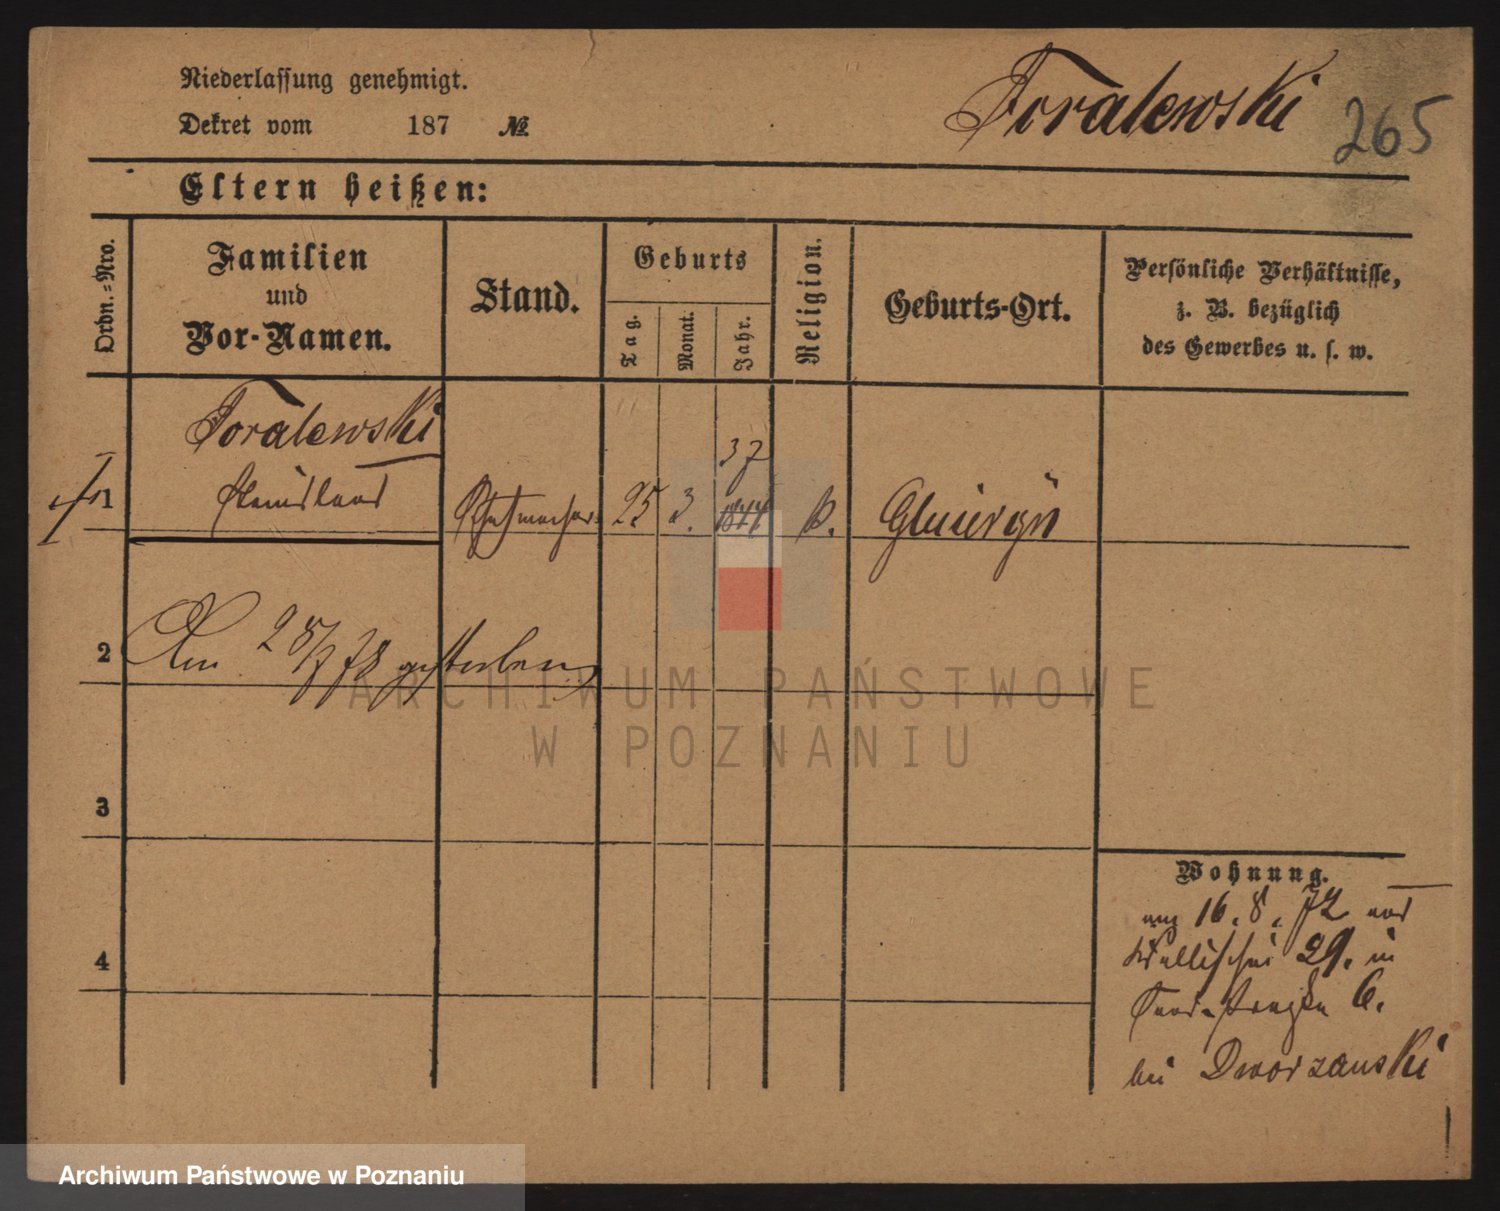 Niederlassung genehmigt.
Dekret vom 187 №
Toralewski
265
Eltern heißen:
Ordn.=Nro.
Familien
und
Vor-Namen.
Stand.
Geburts
Tag.
Monat.
Jahr.
Religion.
Geburts-Ort.
Persönliche Verhältnisse,
z. B. bezüglich
des Gewerbes u. s. w.
Toralewski
37
1
Stanislaus
25
3.
1844
k.
2
Am 28/7 78 gestorben
ARCHIWUM PAŃSTWOWE
W POZNANIU
3
4
Wohnung.
am 16. 8. 72 von
Wallischei 29. in
Sandstraße 6.
bei Dworzanski
Archiwum Państwowe w Poznaniu